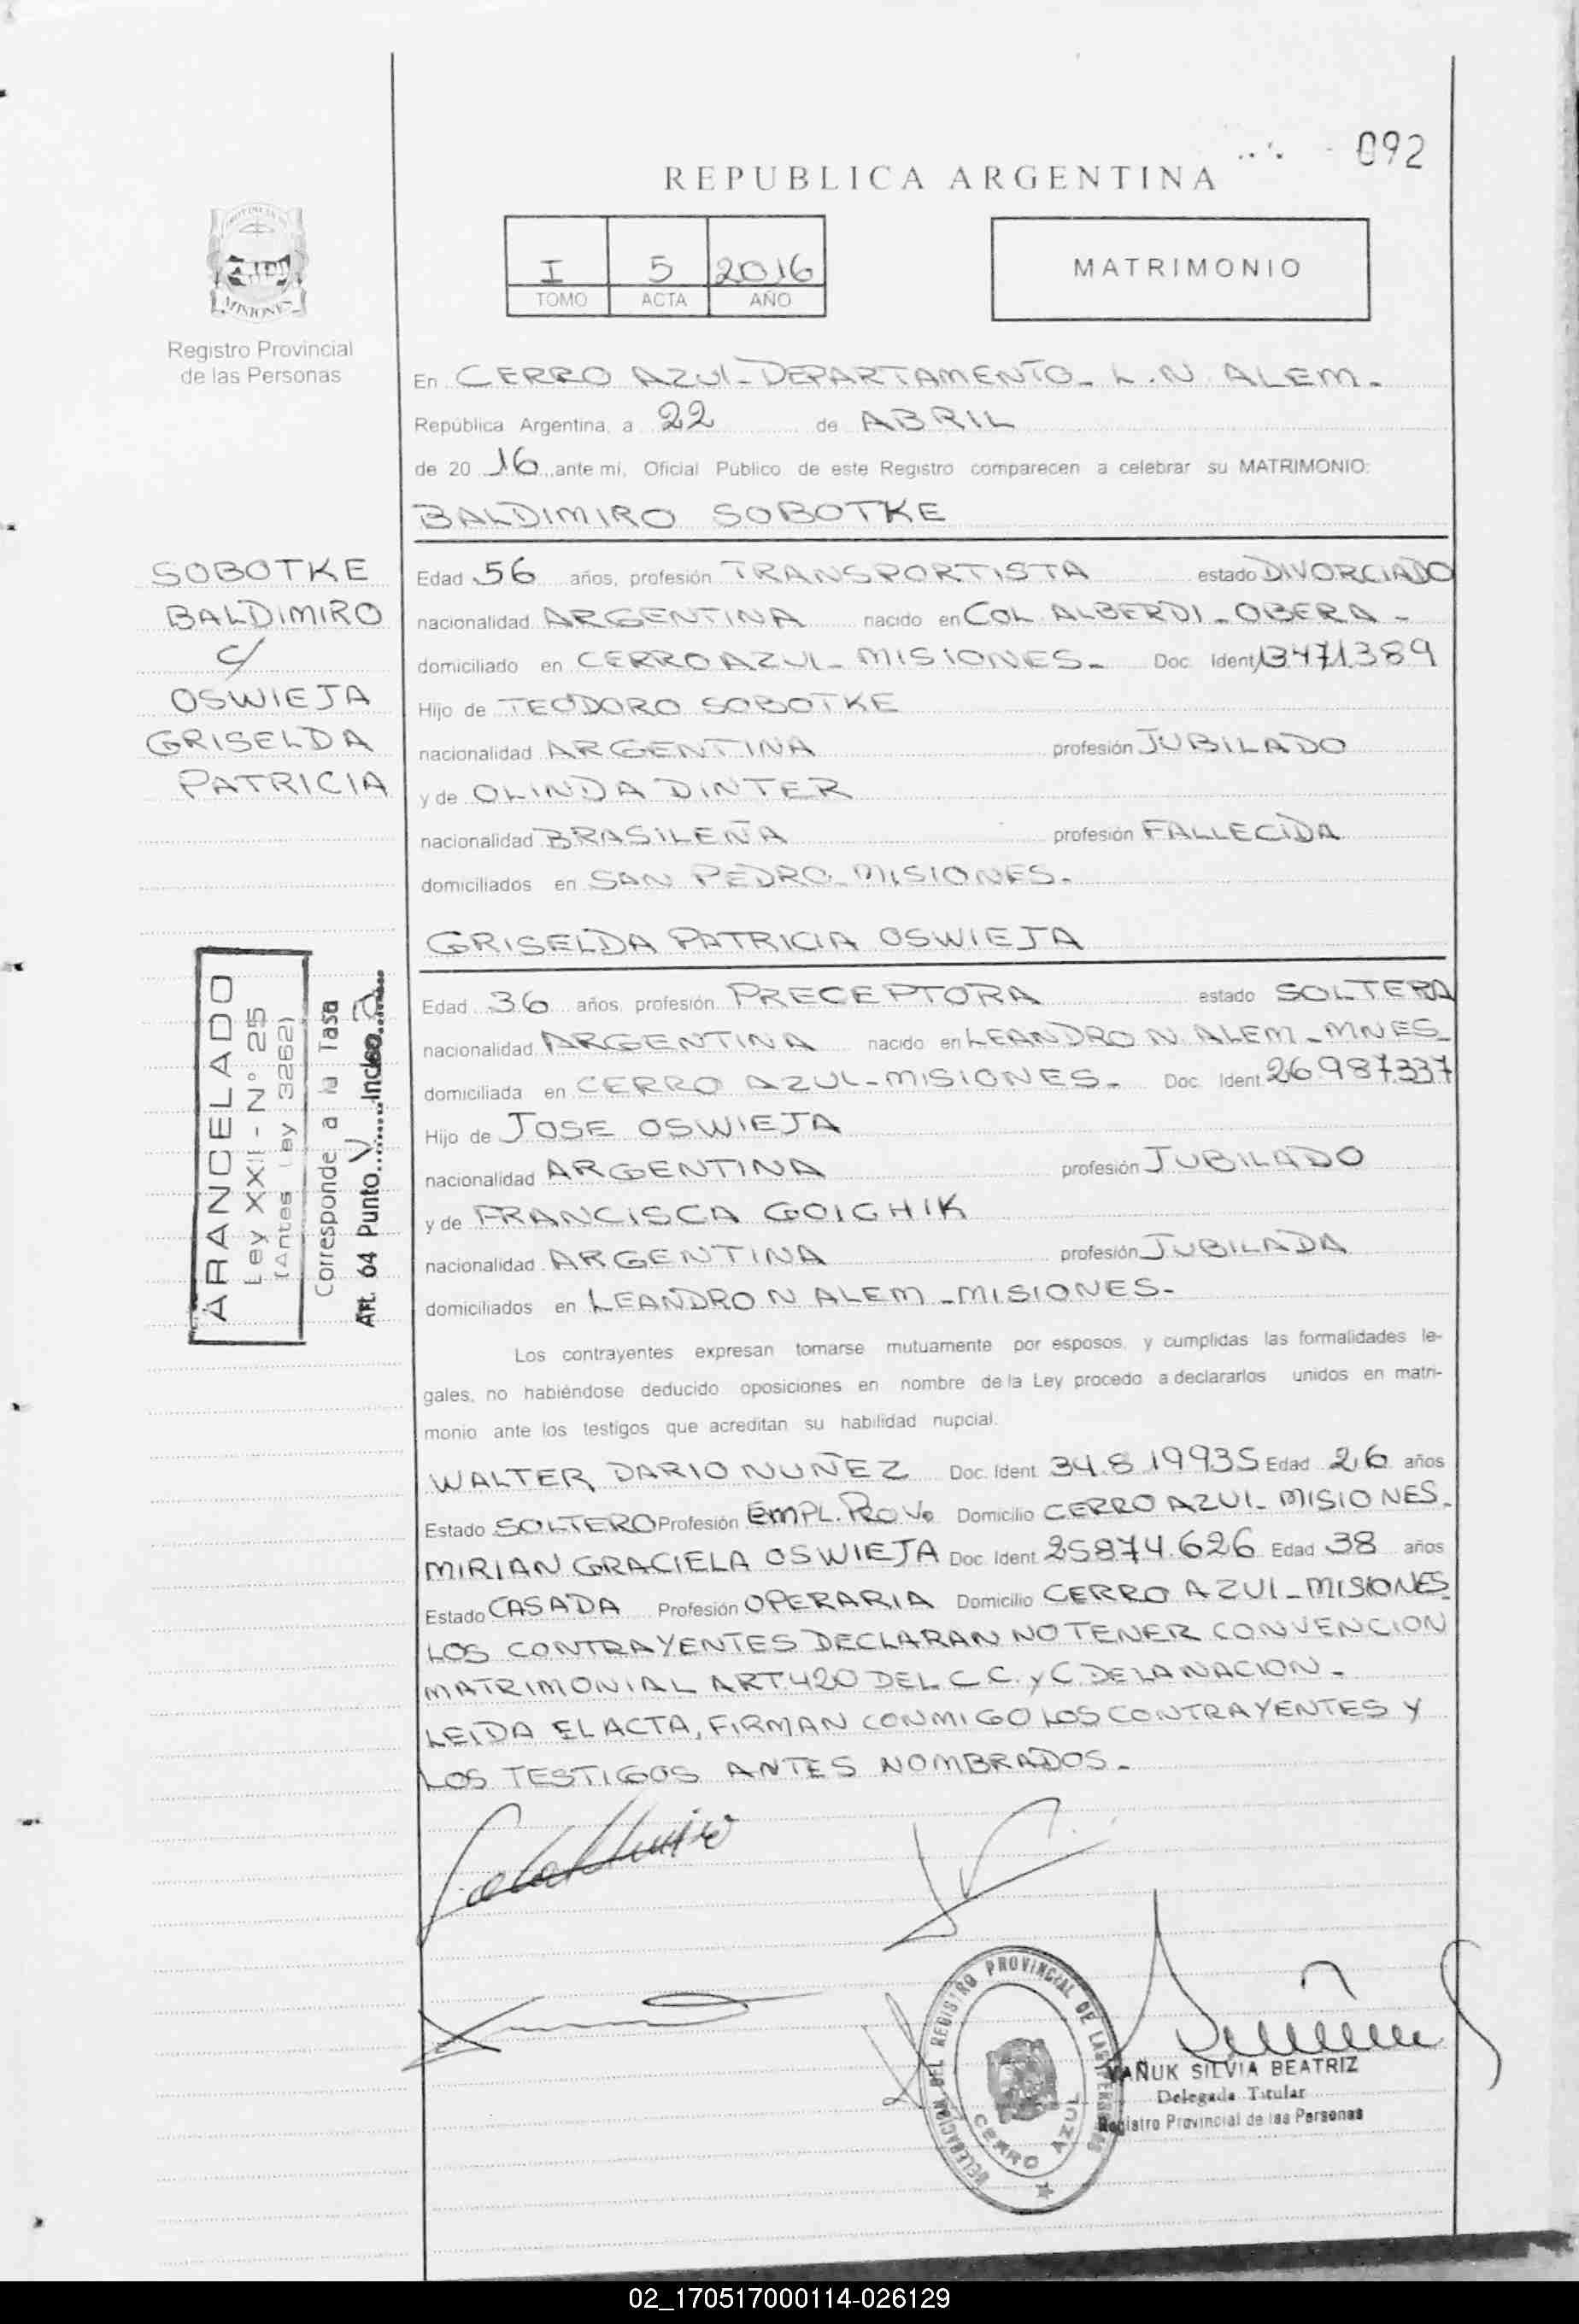 092
REPUBLICA ARGENTINA
I 5 2016
TOMO ACTA AÑO
MATRIMONIO
MISIONES
Registro Provincial
de las Personas
En CERRO AZUL-DEPARTAMENTO- L.N. ALEM.
República Argentina, a 22 de ABRIL
de 20 16 ante mi, Oficial Público de este Registro comparecen a celebrar su MATRIMONIO:
BALDIMIRO SOBOTKE
SOBOTKE
BALDIMIRO
c/
OSWIEJA
GRISELDA
PATRICIA
Edad 56 años, profesión TRANSPORTISTA estado DIVORCIADO
nacionalidad ARGENTINA nacido en COL. ALBERDI - OBERA -
domiciliado en CERRO AZUL - MISIONES. Doc. Ident. 13.471.389
Hijo de TEODORO SOBOTKE
nacionalidad ARGENTINA profesión JUBILADO
y de OLINDA DINTER
nacionalidad BRASILEÑA profesión FALLECIDA
domiciliados en SAN PEDRO - MISIONES.
GRISELDA PATRICIA OSWIEJA
Edad 36 años, profesión PRECEPTORA estado SOLTERA
nacionalidad ARGENTINA nacido en LEANDRO N. ALEM - MNES
domiciliada en CERRO AZUL - MISIONES. Doc. Ident. 26.987.337
Hijo de JOSE OSWIEJA
nacionalidad ARGENTINA profesión JUBILADO
y de FRANCISCA GOIGHIK
nacionalidad ARGENTINA profesión JUBILADA
domiciliados en LEANDRO N ALEM - MISIONES.
ARANCELADO
Ley XXII - N° 25
(Antes Ley 3262)
Corresponde a la Tasa
Art. 64 Punto V Inciso a
Los contrayentes expresan tomarse mutuamente por esposos, y cumplidas las formalidades le-
gales, no habiéndose deducido oposiciones en nombre de la Ley procedo a declararlos unidos en matri-
monio ante los testigos que acreditan su habilidad nupcial.
WALTER DARIO NUÑEZ Doc. Ident. 34.819935 Edad 26 años
Estado SOLTERO Profesión EMPL. PROV. Domicilio CERRO AZUL - MISIONES.
MIRIAN GRACIELA OSWIEJA Doc. Ident. 25874.626 Edad 38 años
Estado CASADA Profesión OPERARIA Domicilio CERRO AZUL - MISIONES
LOS CONTRAYENTES DECLARAN NO TENER CONVENCION
MATRIMONIAL ART.420 DEL C.C. y C DE LA NACION.
LEIDA EL ACTA, FIRMAN CONMIGO LOS CONTRAYENTES Y
LOS TESTIGOS ANTES NOMBRADOS.
DELEGACION DEL REGISTRO PROVINCIAL DE LAS PERSONAS
CERRO AZUL
YAÑUK SILVIA BEATRIZ
Delegada Titular
Registro Provincial de las Personas
02_170517000114-026129